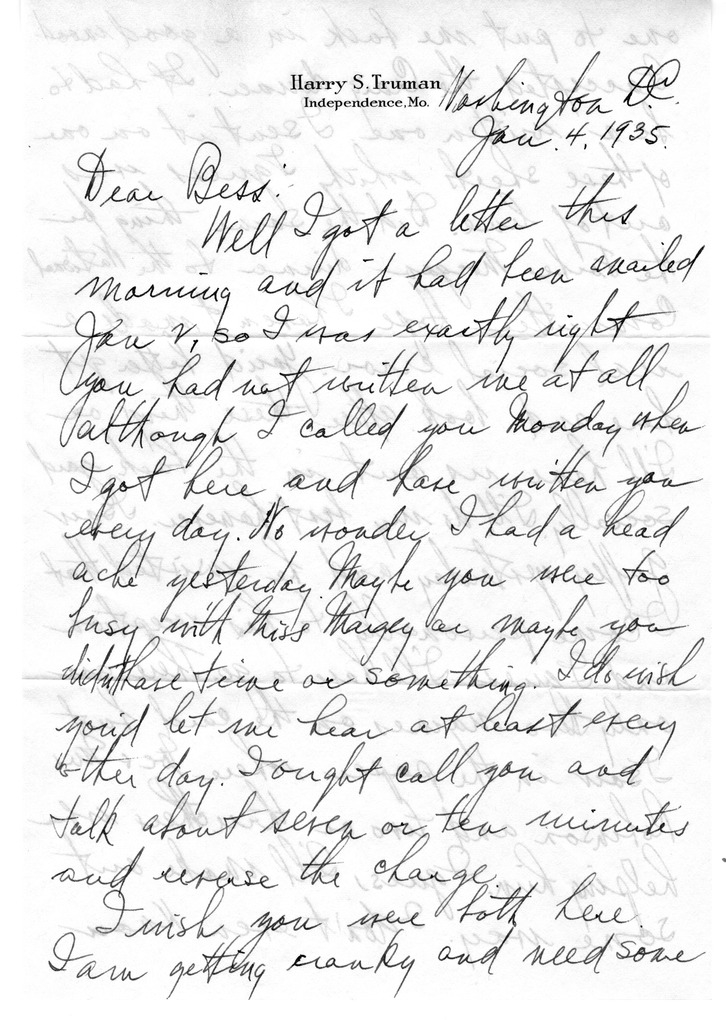 Harry S. Truman
Independence, Mo.
Washington D.C.
Jan. 4, 1935.
Dear Bess:
Well I got a letter this
morning and it had been mailed
Jan 2, so I was exactly right
you had not written me at all
although I called you Monday when
I got here and have written you
every day. No wonder I had a head
ache yesterday. Maybe you were too
busy with Miss Margey or maybe you
didn't have time or something. I do wish
you'd let me hear at least every
other day. I ought call you and
talk about seven or ten minutes
and reverse the charge.
I wish you were both here.
I am getting cranky and need some